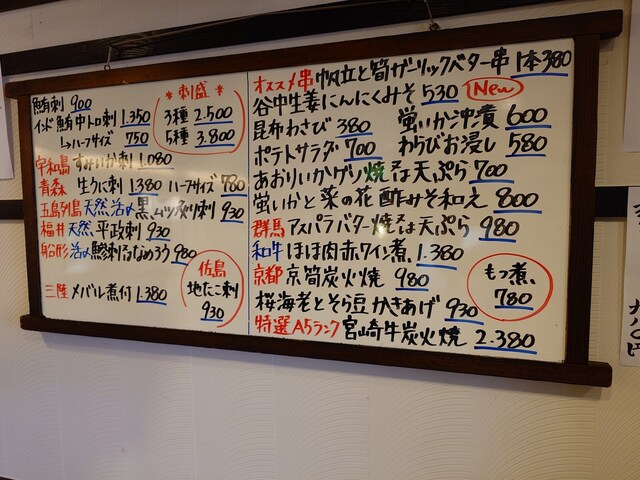 鮪刺 900
インド鮪中トロ刺 1.350
↳ハーフサイズ 750
＊刺盛＊
3種 2.500
5種 3.800
宇和島 すみいか刺 1.080
青森 生うに刺 1.380 ハーフサイズ 780
五島列島 天然活〆黒ムツ炙り刺 930
福井 天然平政刺 930
船形 活〆鯵刺
なめろう 980
三陸 メバル煮付 1.380
佐島
地たこ刺
930
オススメ串 帆立と筍ガーリックバター串 1本380
谷中生姜にんにくみそ 530 New
昆布わさび 380 蛍いか沖漬 600
ポテトサラダ 700 わらびお浸し 580
あおりいかゲソ焼又は天ぷら 700
蛍いかと菜の花酢みそ和え 800
群馬 アスパラバター焼又は天ぷら 980
和牛 ほほ肉赤ワイン煮 1.380
京都 京筍炭火焼 980
もつ煮
780
桜海老とそら豆かきあげ 930
特選A5ランク 宮崎牛炭火焼 2.380